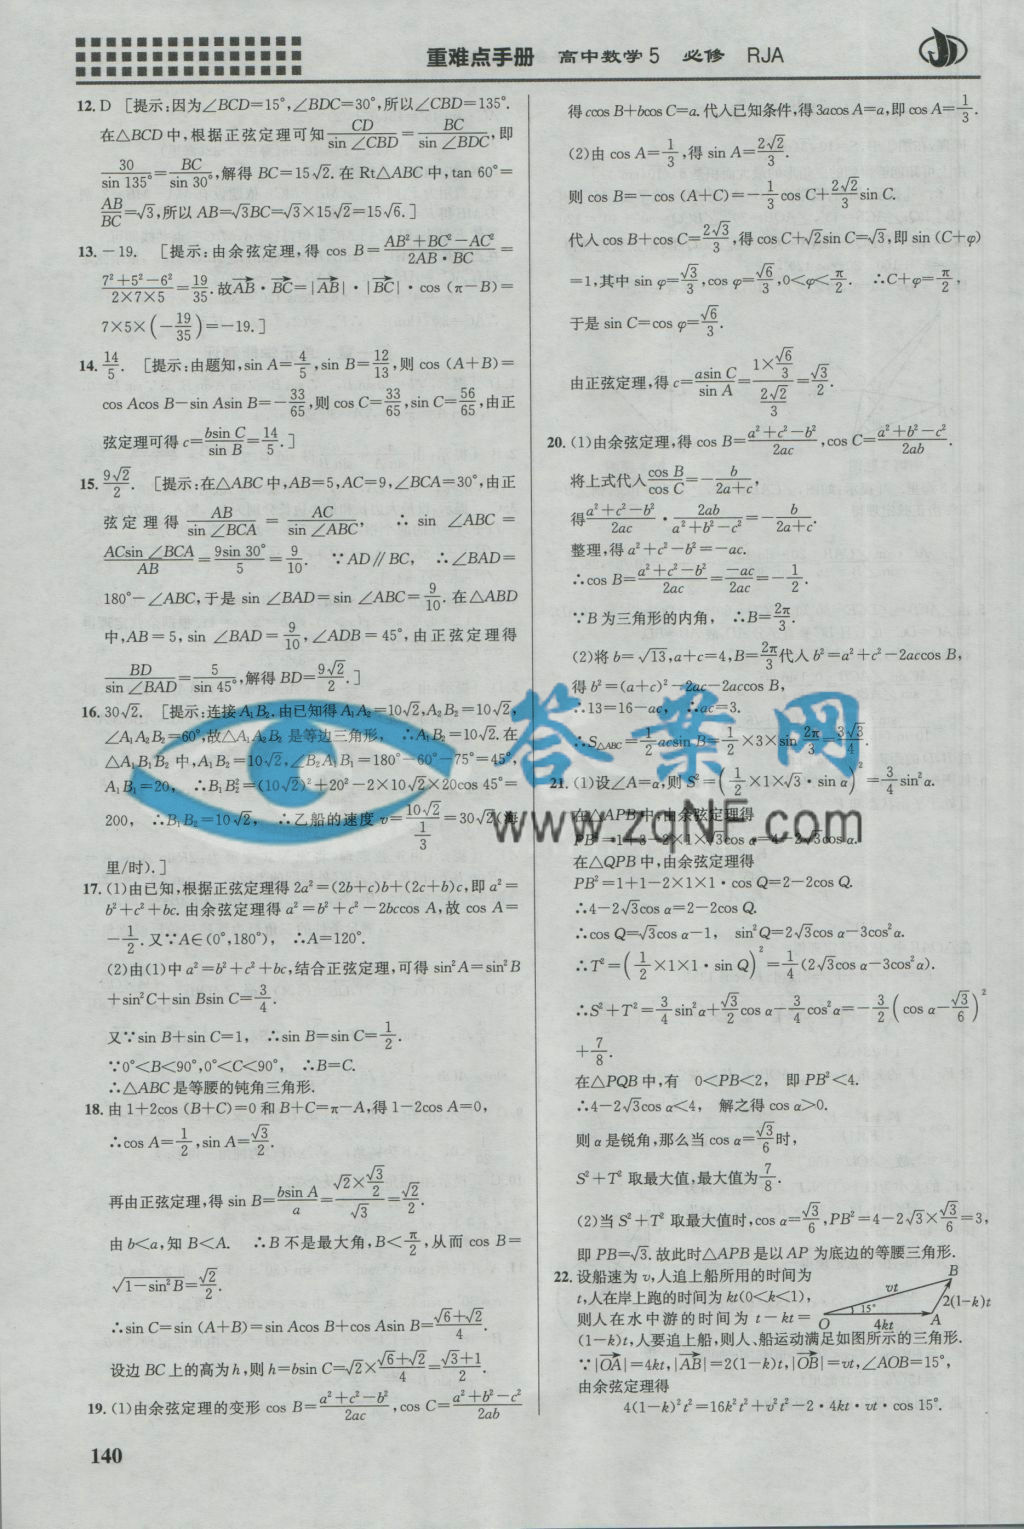 重难点手册 高中数学5 必修 RJA
12. D [提示:因为∠BCD=15°,∠BDC=30°,所以∠CBD=135°.
在△BCD中,根据正弦定理可知CD/sin∠CBD=BC/sin∠BDC,即
30/sin 135°=BC/sin 30°,解得BC=15√2.在Rt△ABC中,tan 60°=
AB/BC=√3,所以AB=√3BC=√3×15√2=15√6.]
13. -19. [提示:由余弦定理,得 cos B=(AB²+BC²-AC²)/(2AB·BC)=
(7²+5²-6²)/(2×7×5)=19/35.故AB·BC=|AB|·|BC|·cos(π-B)=
7×5×(-19/35)=-19.]
14. 14/5. [提示:由题知,sin A=4/5,sin B=12/13,则 cos (A+B)=
cos Acos B-sin Asin B=-33/65,则cos C=33/65,sin C=56/65,由正
弦定理可得c=bsin C/sin B=14/5.]
15. 9√2/2. [提示:在△ABC中,AB=5,AC=9,∠BCA=30°,由正
弦定理得 AB/sin∠BCA=AC/sin∠ABC, ∴sin ∠ABC=
ACsin∠BCA/AB=9sin 30°/5=9/10. ∵AD∥BC, ∴∠BAD=
180°-∠ABC,于是 sin∠BAD=sin∠ABC=9/10.在△ABD
中,AB=5,sin ∠BAD=9/10,∠ADB=45°,由正弦定理得
BD/sin∠BAD=5/sin 45°,解得BD=9√2/2.]
16. 30√2. [提示:连接A₁B₂.由已知得A₁A₂=10√2,A₂B₂=10√2,
∠A₁A₂B₂=60°,故△A₁A₂B₂是等边三角形, ∴A₁B₂=10√2.在
△A₁B₁B₂中,A₁B₂=10√2,∠B₂A₁B₁=180°-60°-75°=45°,
A₁B₁=20, ∴B₁B₂²=(10√2)²+20²-2×10√2×20cos 45°=
200, ∴B₁B₂=10√2, ∴乙船的速度v=10√2/(1/3)=30√2(海
里/时).]
17. (1)由已知,根据正弦定理得2a²=(2b+c)b+(2c+b)c,即a²=
b²+c²+bc.由余弦定理得a²=b²+c²-2bccos A,故 cos A=
-1/2.又∵A∈(0°,180°), ∴A=120°.
(2)由(1)中a²=b²+c²+bc,结合正弦定理,可得sin²A=sin²B
+sin²C+sin Bsin C=3/4.
又∵sin B+sin C=1, ∴sin B=sin C=1/2.
∵0°<B<90°,0°<C<90°, ∴B=C.
∴△ABC是等腰的钝角三角形.
18. 由1+2cos (B+C)=0和B+C=π-A,得1-2cos A=0,
∴cos A=1/2,sin A=√3/2.
再由正弦定理,得 sin B=bsin A/a=(√2×√3/2)/√3=√2/2.
由b<a,知B<A. ∴B不是最大角,B<π/2,从而 cos B=
√(1-sin²B)=√2/2.
∴sin C=sin (A+B)=sin Acos B+cos Asin B=(√6+√2)/4.
设边BC上的高为h,则h=bsin C=√2×(√6+√2)/4=(√3+1)/2.
19. (1)由余弦定理的变形 cos B=(a²+c²-b²)/2ac,cos C=(a²+b²-c²)/2ab
140
得ccos B+bcos C=a.代入已知条件,得3acos A=a,即cos A=1/3.
(2)由 cos A=1/3,得 sin A=2√2/3.
则 cos B=-cos (A+C)=-1/3cos C+2√2/3sin C.
代入cos B+cos C=2√3/3,得cos C+√2sin C=√3,即sin (C+φ)
=1,其中 sin φ=√3/3,cos φ=√6/3,0<φ<π/2. ∴C+φ=π/2,
于是 sin C=cos φ=√6/3.
由正弦定理,得c=asin C/sin A=(1×√6/3)/(2√2/3)=√3/2.
20. (1)由余弦定理,得 cos B=(a²+c²-b²)/2ac,cos C=(a²+b²-c²)/2ab.
将上式代入cos B/cos C=-b/(2a+c),
得(a²+c²-b²)/2ac·2ab/(a²+b²-c²)=-b/(2a+c).
整理,得a²+c²-b²=-ac.
∴cos B=(a²+c²-b²)/2ac=-ac/2ac=-1/2.
∵B为三角形的内角, ∴B=2π/3.
(2)将b=√13,a+c=4,B=2π/3代入b²=a²+c²-2accos B,
得b²=(a+c)²-2ac-2accos B,
∴13=16-ac, ∴ac=3.
∴S△ABC=1/2acsin B=1/2×3×sin 2π/3=3√3/4.
21. (1)设∠A=α,则S²=(1/2×1×√3·sin α)²=3/4sin²α.
在△APB中,由余弦定理得
PB²=1+3-2×1×√3cos α=4-2√3cos α.
在△QPB中,由余弦定理得
PB²=1+1-2×1×1·cos Q=2-2cos Q.
∴4-2√3cos α=2-2cos Q.
∴cos Q=√3cos α-1, sin²Q=2√3cos α-3cos²α.
∴T²=(1/2×1×1·sin Q)²=1/4(2√3cos α-3cos²α).
∴S²+T²=3/4sin²α+√3/2cos α-3/4cos²α=-3/2(cos α-√3/6)²
+7/8.
在△PQB中,有 0<PB<2, 即PB²<4.
∴4-2√3cos α<4, 解之得 cos α>0.
则α是锐角,那么当cos α=√3/6时,
S²+T²取最大值,最大值为7/8.
(2)当S²+T²取最大值时,cos α=√3/6,PB²=4-2√3×√3/6=3,
即PB=√3.故此时△APB是以AP为底边的等腰三角形.
22. 设船速为v,人追上船所用的时间为
t,人在岸上跑的时间为kt(0<k<1),
则人在水中游的时间为t-kt=
(1-k)t,人要追上船,则人、船运动满足如图所示的三角形.
∵|OA|=4kt,|AB|=2(1-k)t,|OB|=vt,∠AOB=15°,
由余弦定理得
4(1-k)²t²=16k²t²+v²t²-2·4kt·vt·cos 15°.
B
vt
15°
2(1-k)t
O
4kt
A
答案网
www.zqNF.com